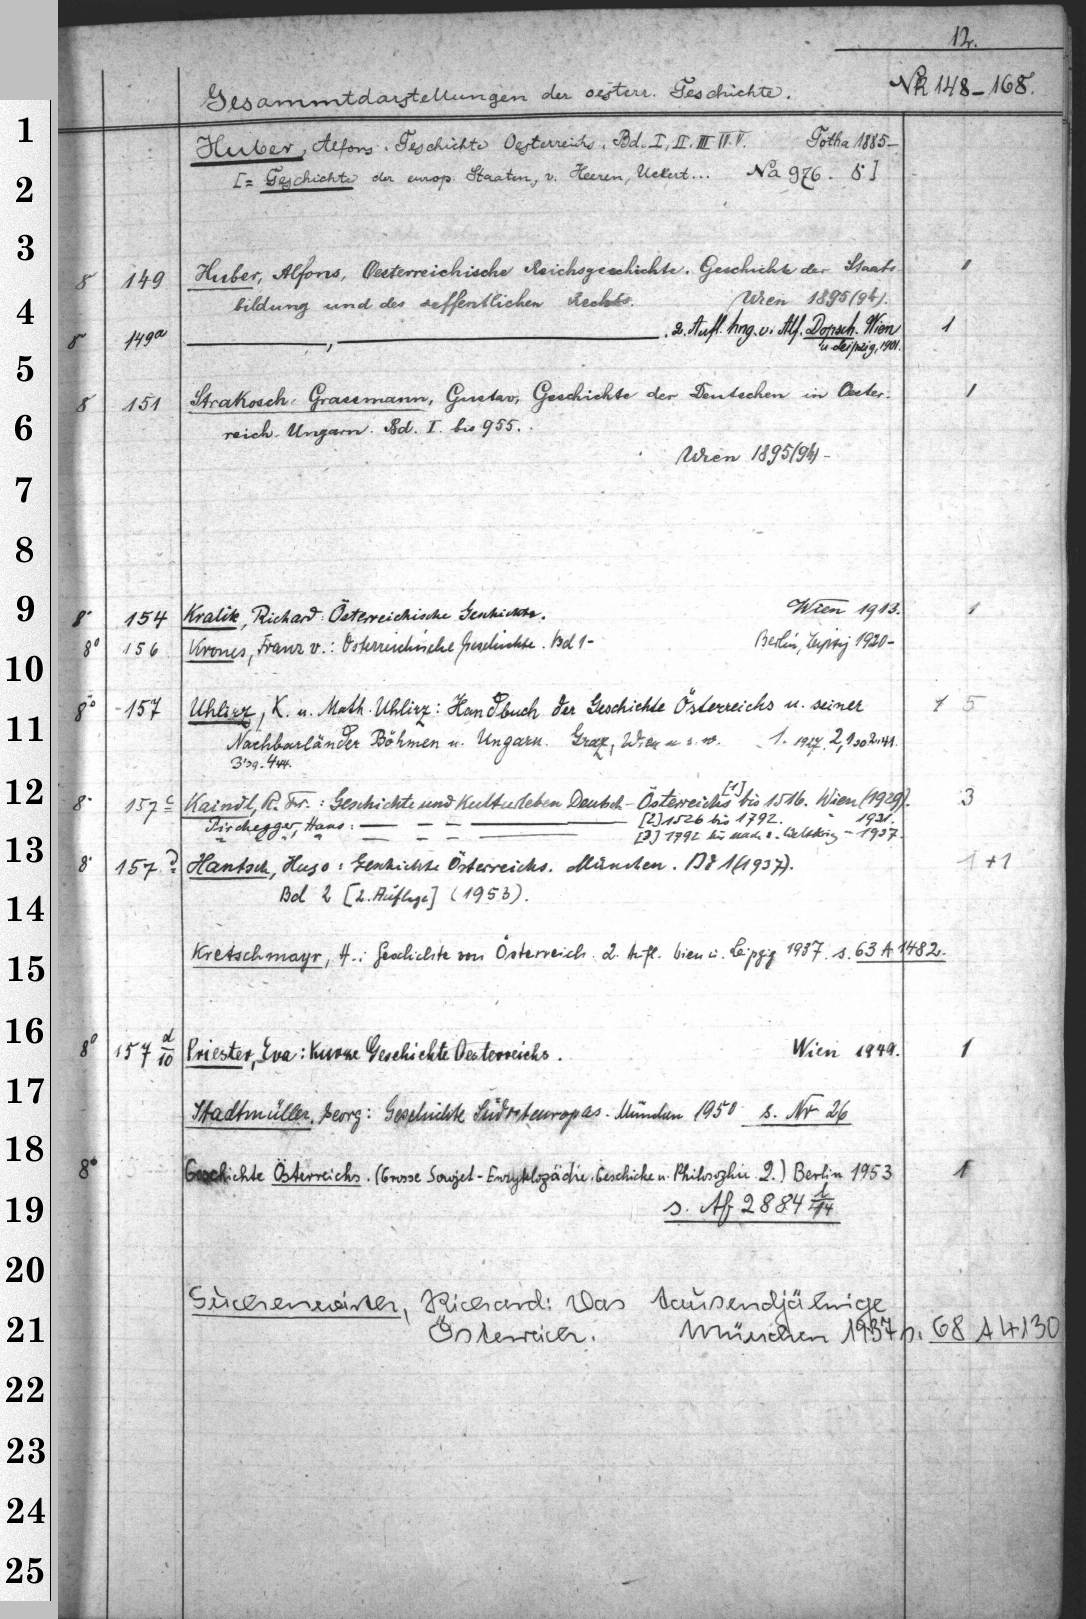 12.
Gesammtdarstellungen der oesterr. Geschichte. Nk 148-168.
1
Huber, Alfons. Geschichte Oesterreichs. Bd. I, II, III IV. V. Gotha 1885-
2
[= Geschichte der europ. Staaten, v. Heeren, Uckert... Na 976. 8°]
3
8° 149 Huber, Alfons, Oesterreichische Reichsgeschichte. Geschichte der Staats 1
4
bildung und des oeffentlichen Rechts. Wien 1895(94).
8° 149a ———, ———. 2. Aufl. hrg. v. Alf. Dopsch. Wien 1
u. Leipzig, 1901.
5
8° 151 Strakosch-Grassmann, Gustav, Geschichte der Deutschen in Oester- 1
6
reich-Ungarn. Bd. I. bis 955.
Wien 1895(94)-
7
8
9
8° 154 Kralik, Richard: Österreichische Geschichte. Wien 1913. 1
8° 156 Krones, Franz v.: Österreichische Geschichte. Bd 1- Berlin, Leipzig 1920-
10
8° 157 Uhlirz, K. u. Math. Uhlirz: Handbuch der Geschichte Österreichs u. seiner 1 5
11
Nachbarländer Böhmen u. Ungarn. Graz, Wien u. s. w. 1. 1927. 2,1 30 2. 41.
3. 44.
12
8° 157c Kaindl, R. Fr.: Geschichte und Kulturleben Deutsch-Österreichs [1] bis 1526. Wien (1929). 3
Pirchegger, Hans: — — — ——— [2] 1526 bis 1792. " 1931.
[3] 1792 bis nach d. Weltkrieg - 1937.
13
8° 157d Hantsch, Hugo: Geschichte Österreichs. München. Bd 1 (1937). 1 +1
14
Bd 2 [2. Auflage] (1953).
15
Kretschmayr, H.: Geschichte von Österreich. 2. Aufl. Wien u. Leipzig 1937. s. 63 A 1482.
16
8° 157 d/10 Priester, Eva: Kurze Geschichte Oesterreichs. Wien 1949. 1
17
Stadtmüller, Georg: Geschichte Südosteuropas. München 1950 s. Nr 26
18
8° Geschichte Österreichs. (Grosse Sowjet-Enzyklopädie. Geschichte u. Philosophie 2.) Berlin 1953 1
19
s. Af 2884 l/14
20
Suchenwirth, Richard: Das tausendjährige
21
Österreich. München 1937 s. 68 A 4130
22
23
24
25